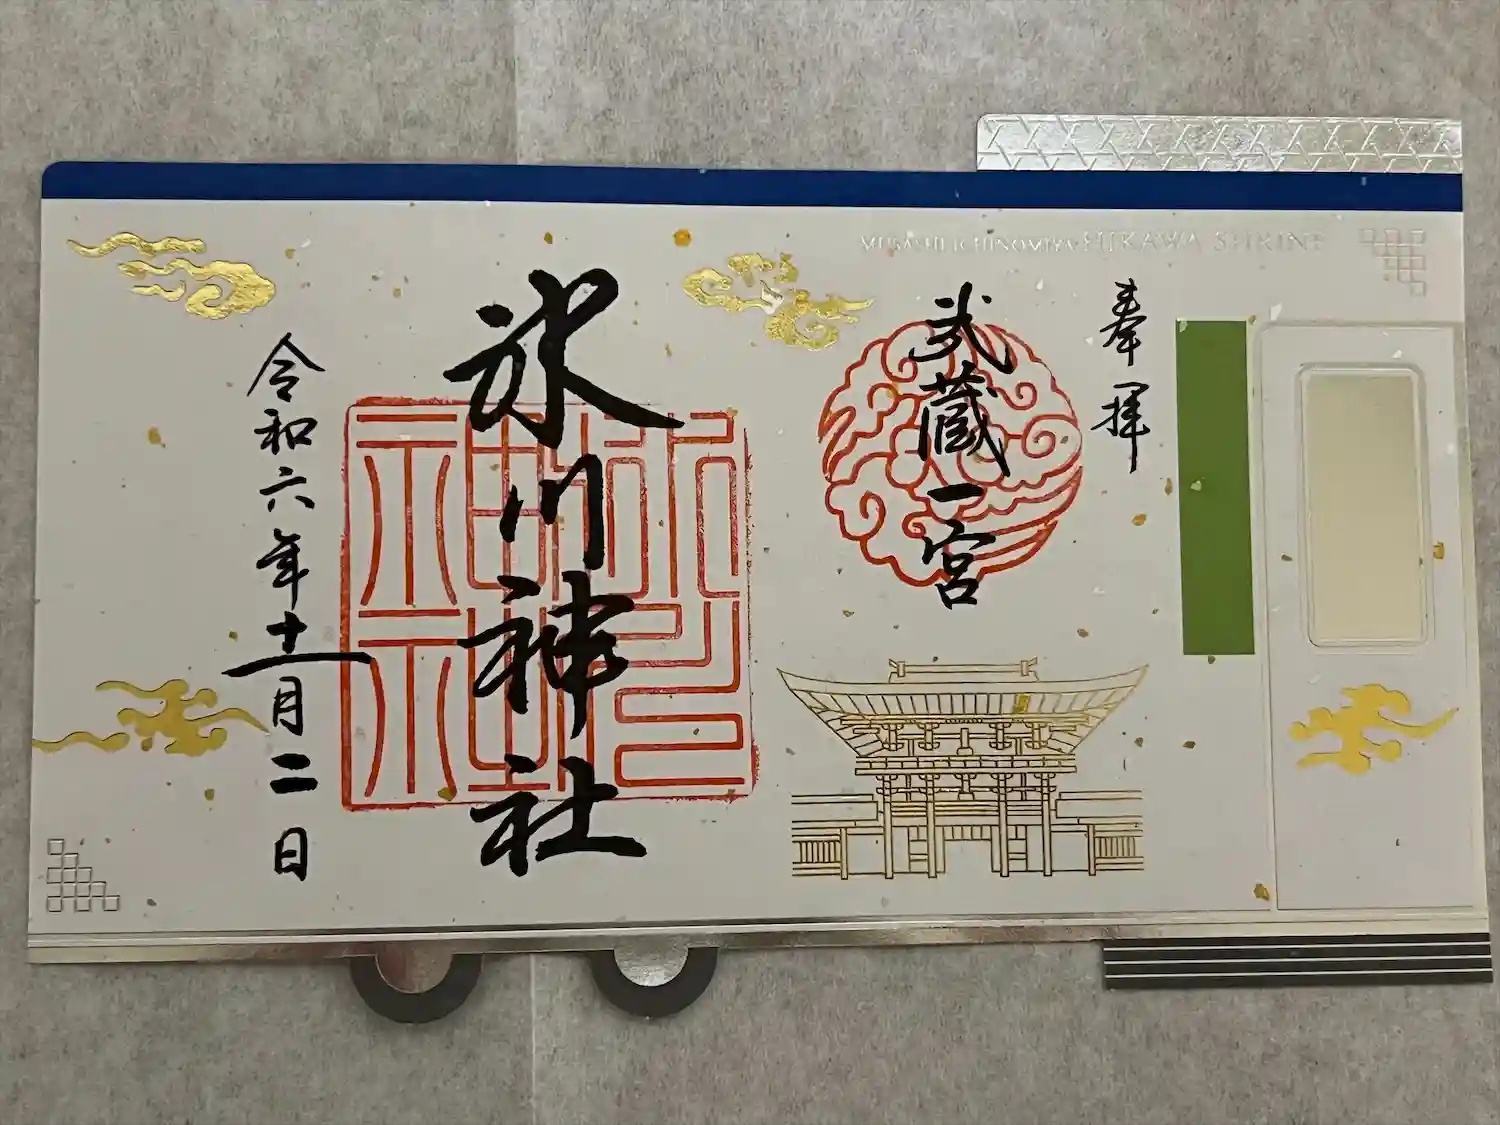 MUSASHI ICHINOMIYA HIKAWA SHRINE
奉拝
武蔵一宮
氷川神社
令和六年十一月二日